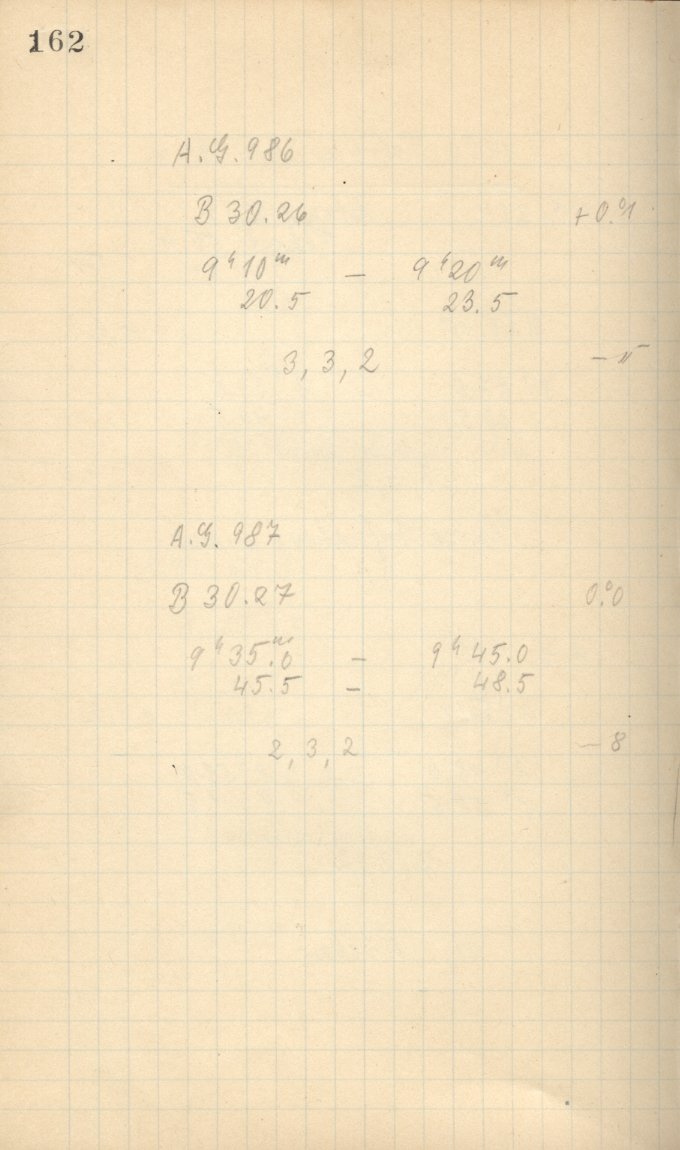 162
A.G. 986
B 30.26 +0.°1
9ʰ10ᵐ — 9ʰ20ᵐ
20.5 23.5
3, 3, 2 —
A.G. 987
B 30.27 0.°0
9ʰ35.ᵐ0 — 9ʰ45.0
45.5 — 48.5
2, 3, 2 — 8